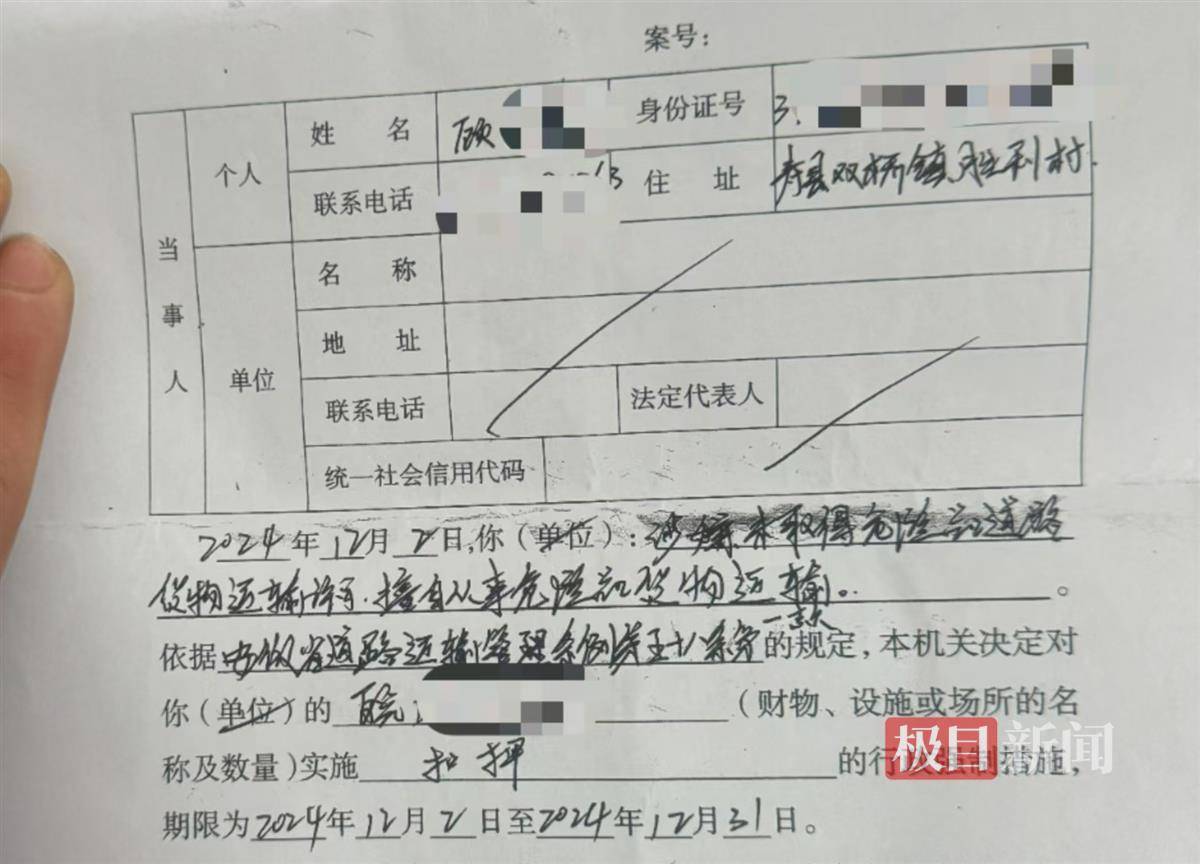 案号：
当事人
个人
姓 名
顾
身份证号
3.
联系电话
住 址
寿县双桥镇胜利村.
单位
名 称
地 址
联系电话
法定代表人
统一社会信用代码
2024年12月2日,你（单位）：涉嫌未取得危险品道路
货物运输许可.擅自从事危险品货物运输.。
一款
依据安徽省道路运输管理条例第五十八条第的规定，本机关决定对
你（单位）的 皖 （财物、设施或场所的名
称及数量）实施 扣押 的行政强制措施，
期限为2024年12月2日至2024年12月31日。
极目新闻